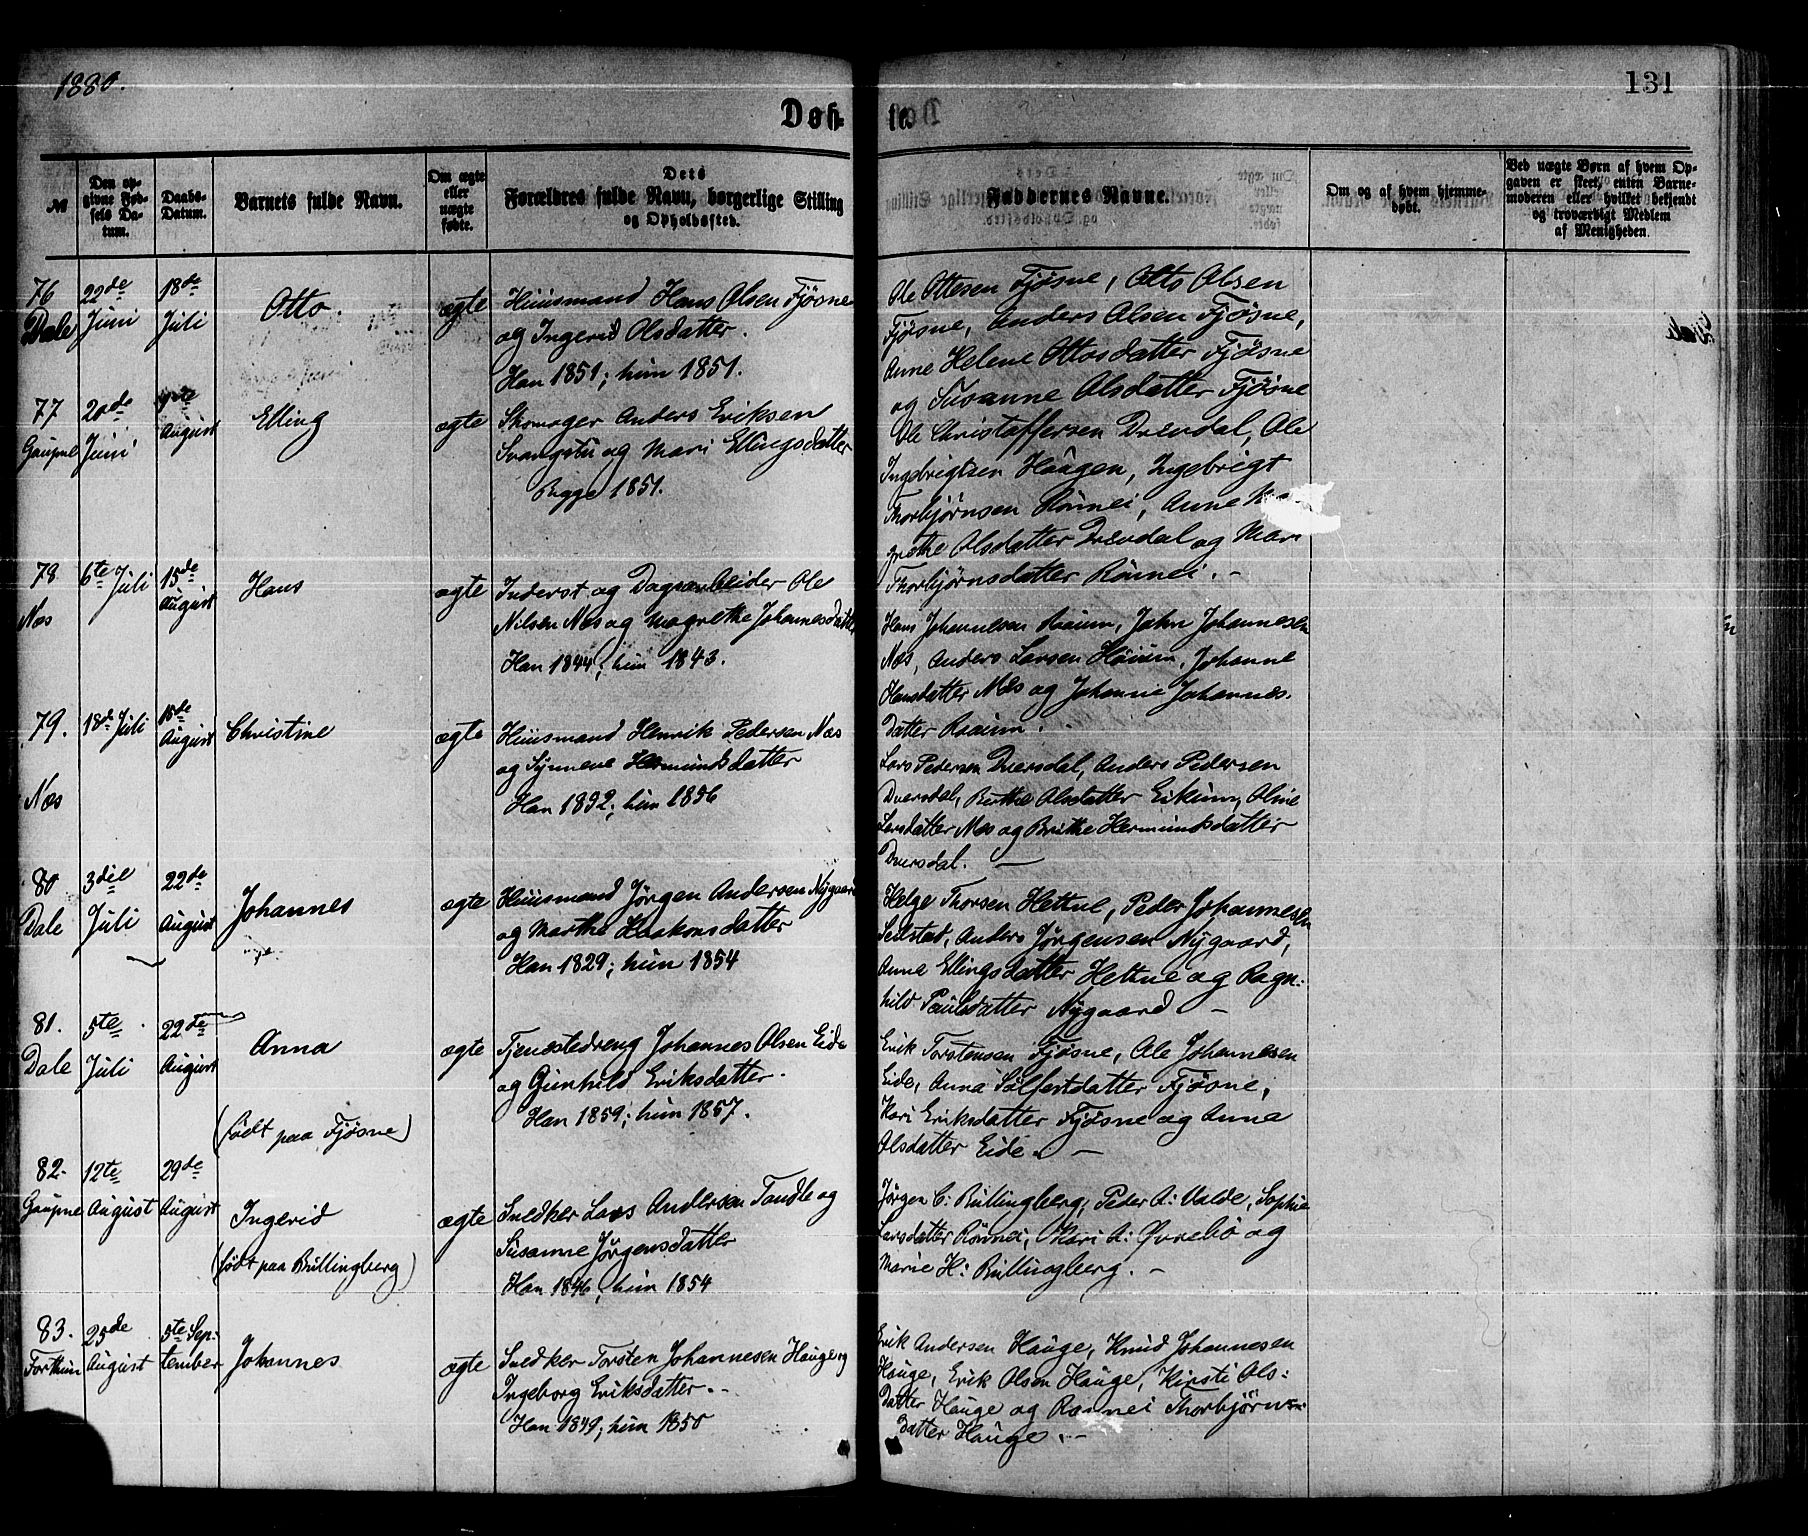 1880.
131
Døb-
te.
№
Den op-
givne Fød-
sels Da-
tum.
Daabs-
Datum.
Barnets fulde Navn.
Om ægte
eller
uægte
fødte.
Dets
Forældres fulde Navn, borgerlige Stilling
og Opholdssted.
Faddernes Navne.
Om og af hvem hjemme-
døbt.
Ved uægte Børn af hvem Op-
gaven er skeet, enten Barne-
moderen eller hvilket bekjendt
og troværdigt Medlem
af Menigheden.
76
Dale
22de
Juni
18de
Juli
Otto.
ægte
Huusmand Hans Olsen Fjøsne
og Ingerid Olsdatter.
Han 1851; hun 1851.
Ole Ottesen Fjøsne, Otto Olsen
Fjøsne, Anders Olsen Fjøsne,
Anne Helene Ottosdatter Fjøsne
og Susanne Olsdatter Fjøsne
77
Gaupne
20de
Juni
August
Elling
ægte
Skomager Anders Eriksen
Svangstu og Mari Ellingsdatter
Begge 1851.
Ole Christoffersen Drevdal, Ole
Ingebrigtsen Haugen, Ingebrigt
Thorbjørnsen Rønnei, Anne
grethe Olsdatter Drevdal og Mari
Thorbjørnsdatter Rønnei. -
78
Næs
6te Juli
15de
August
Hans
ægte
Inderst og Dagsarbeider Ole
Nilsen Næs og Magrethe Johannesdatter
Han 1844; hun 1843.
Hans Johannesen Raaum, John Johannesen
Næs, Anders Larsen Høium, Johanne
Hansdatter Næs og Johanne Johannes-
datter Raaum.
79.
Næs
18de Juli
15de
August
Christine
ægte
Huusmand Henrik Pedersen Næs
og Synneve Hermundsdatter
Han 1852; hun 1856
Lars Pedersen Dversdal, Anders Pedersen
Dversdal, Berthe Olsdatter Eikum, Oline
Larsdatter Næs og Brithe Hermundsdatter
Dversdal. —
80
Dale
3die
Juli
22de
August
Johannes
ægte
Huusmand Jørgen Andersen Nygaard
og Marthe Haakonsdatter
Han 1829; hun 1854
Helge Thorsen Hettne, Peder Johannesen
Seilstad, Anders Jørgensen Nygaard,
Anna Ellingsdatter Hettne og Ragn-
hild Paulsdatter Nygaard -
81.
Dale
5te
Juli
22de
August
Anna
(født paa Fjøsne)
ægte
Tjenestedreng Johannes Olsen Eide
og Gunhild Eriksdatter.
Han 1859; hun 1857.
Erik Torstensen Fjøsne, Ole Johannesen
Eide, Anna Sølfestdatter Fjøsne,
Kari Eriksdatter Fjøsne og Anna
Olsdatter Eide. —
82.
Gaupne
12te
August
29de
August
Ingerid
(født paa Bullingberg)
ægte
Snedker Lars Andersen Tandle og
Susanne Jørgensdatter
Han 1846; hun 1854
Jørgen C: Bullingberg, Peder A: Valde, Sophie
Larsdatter Rønnei, Kari A: Øvrebø og
Marie H: Bullingberg. -
83.
Forthun
25de
August
5te Sep-
tember
Johannes
ægte
Snedker Torsten Johannesen Hauge og
Ingeborg Eriksdatter. -
Han 1849; hun 1850
Erik Andersen Hauge, Knud Johannesen
Hauge, Erik Olsen Hauge, Kirsti Ols-
datter Hauge og Rannei Thorbjørns-
datter Hauge. -